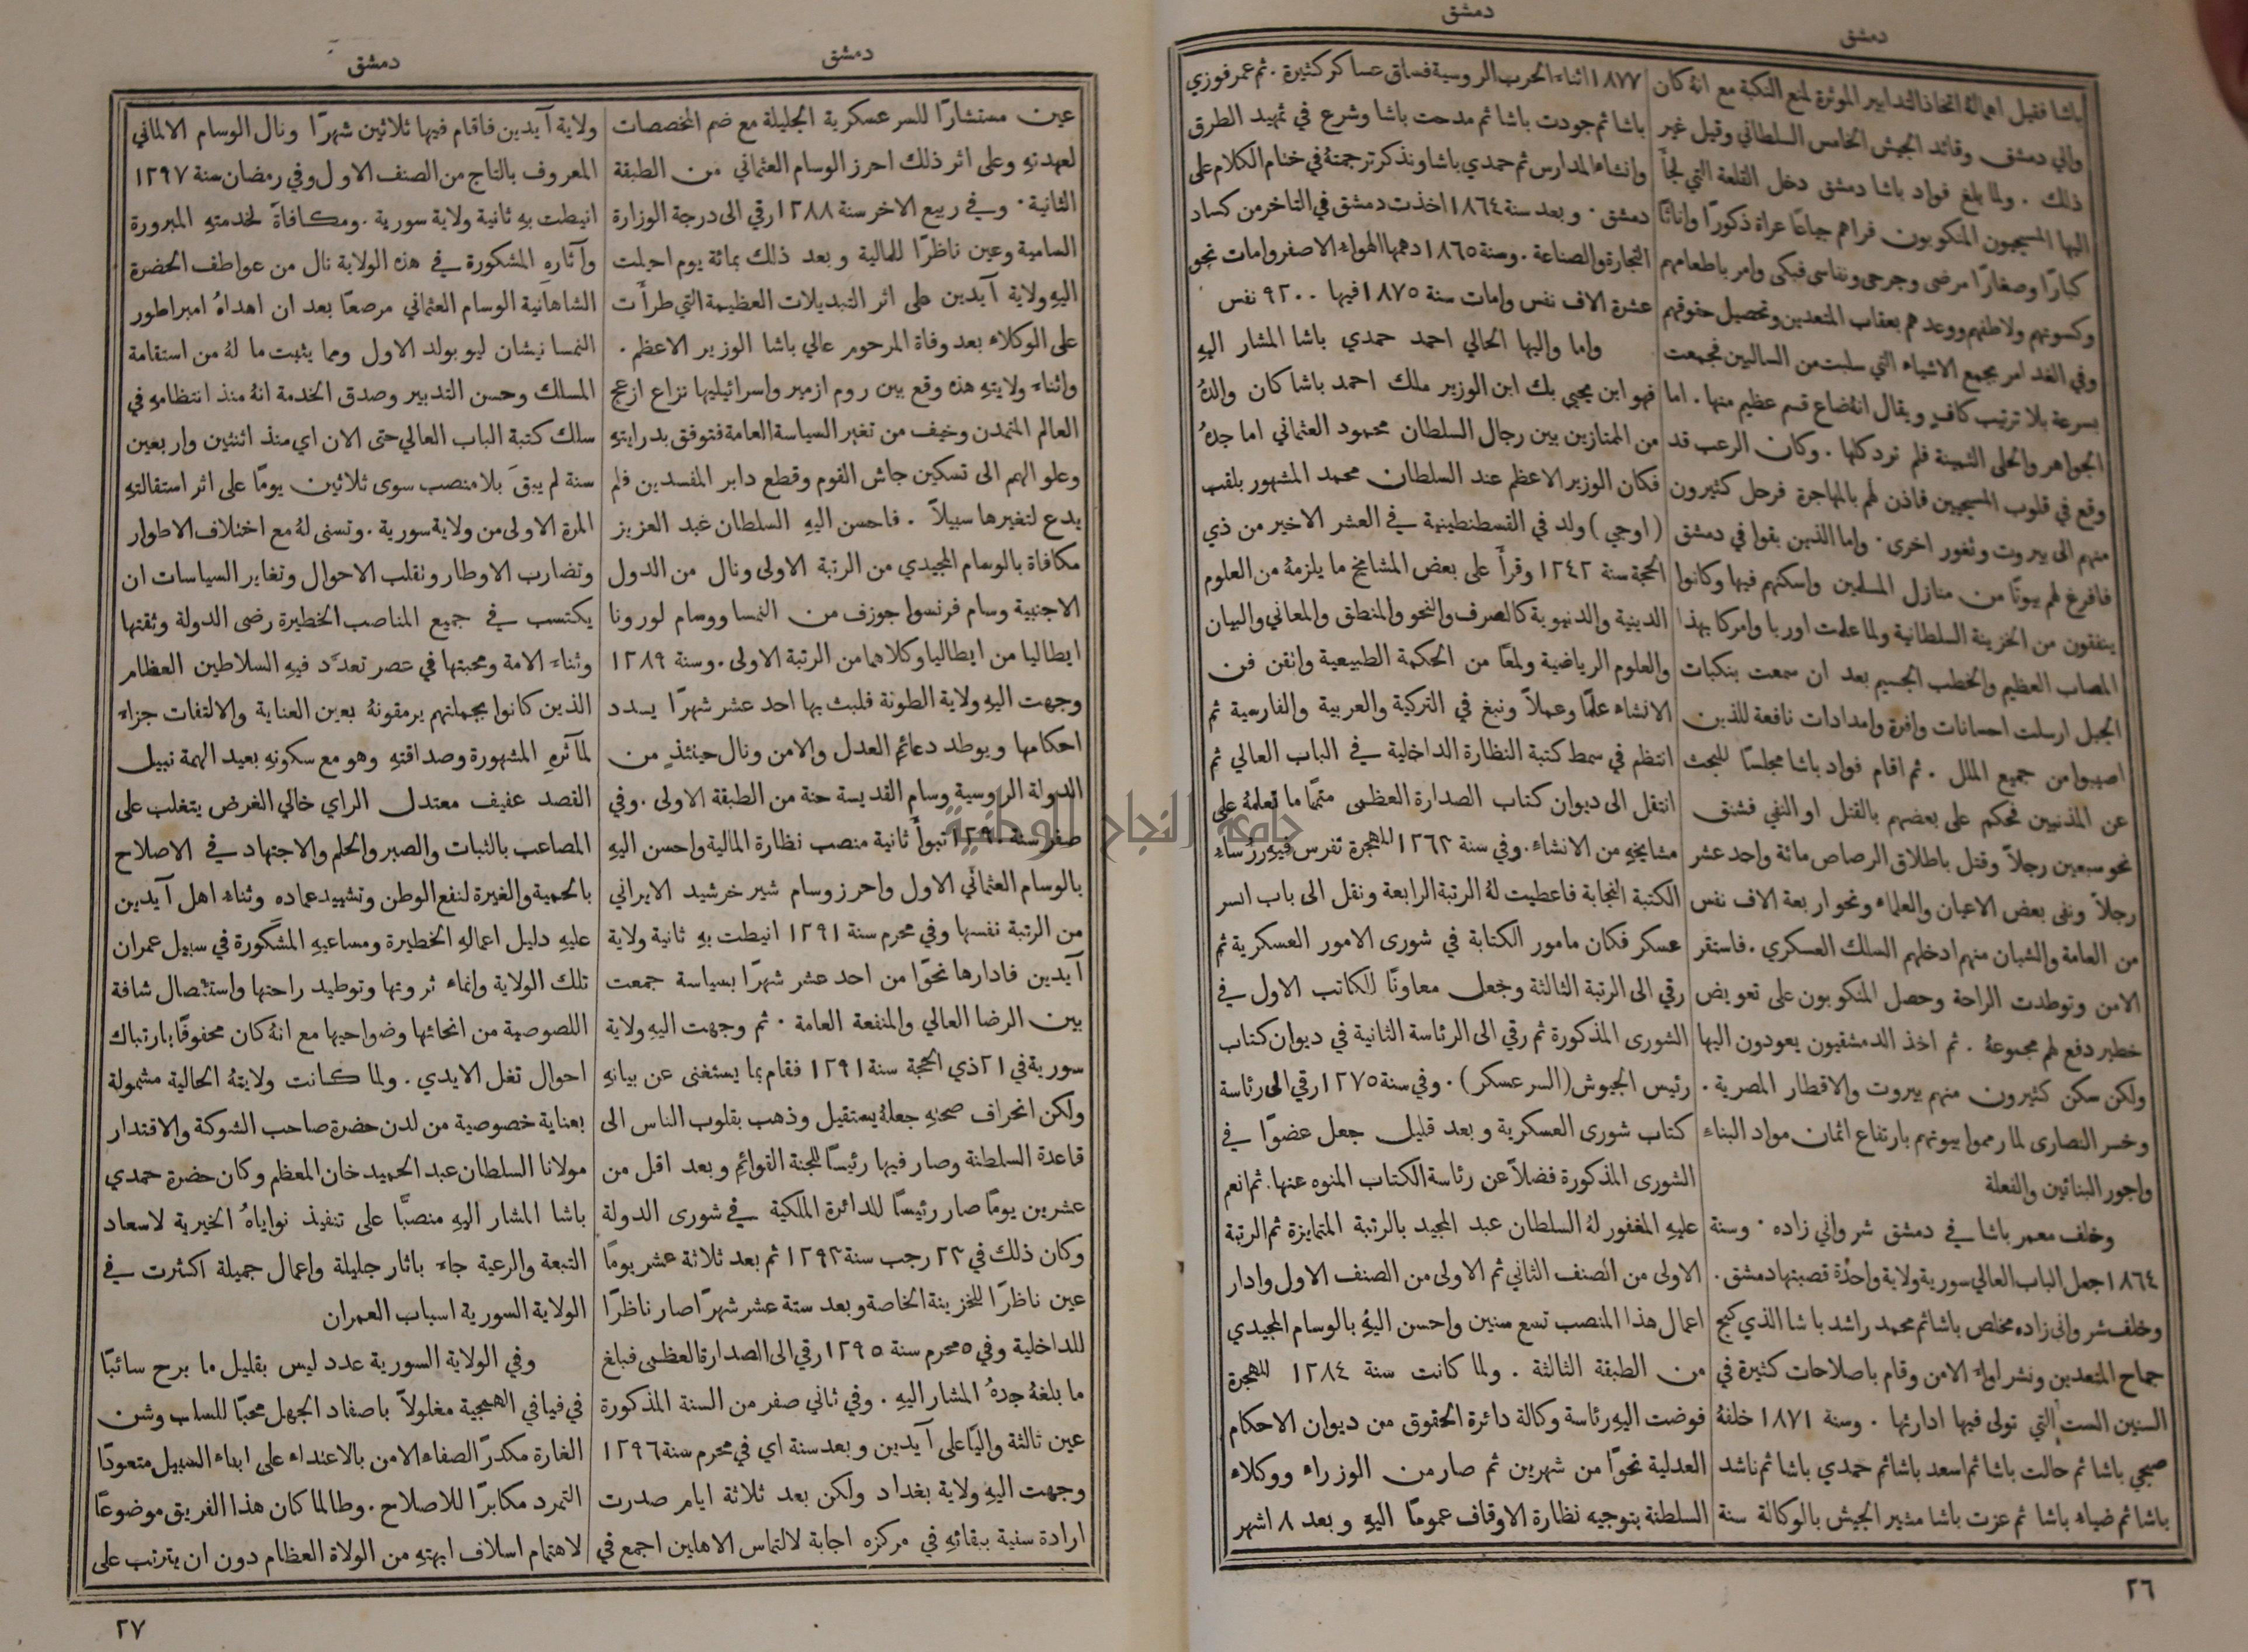 دمشق
دمشق
باشا فقيل اهمالهُ اتخاذ التدابير الموثرة لمنع النكبة مع انهُ كان
والي دمشق وقائد الجيش الخامس السلطاني وقيل غير
ذلك . ولما بلغ فواد باشا دمشق دخل القلعة التي لجأَ
اليها المسيحيون المنكوبون فراهم جياعًا عراة ذكورًا واناثًا
كبارًا وصغارًا مرضى وجرحى ونفاسى فبكى وامر باطعامهم
وكسوتهم ولاطفهم ووعدهم بعقاب المتعدين وتحصيل حقوقهم
وفي الغد امر بجمع الاشياء التي سلبت من السالبين فجمعت
بسرعة بلا ترتيب كافٍ ويقال انهُ ضاع قسم عظيم منها . اما
الجواهر والحلى الثمينة فلم ترد كلها . وكان الرعب قد
وقع في قلوب المسيحيين فاذن لهم بالمهاجرة فرحل كثيرون
منهم الى بيروت وثغور اخرى . واما الذين بقوا في دمشق
فافرغ لهم بيوتًا من منازل المسلمين واسكنهم فيها وكانوا
ينفقون من الخزينة السلطانية ولما علمت اوربا وامركا بهذا
المصاب العظيم والخطب الجسيم بعد ان سمعت بنكبات
الجبل ارسلت احسانات وافرة وامدادات نافعة للذين
اصيبوا من جميع الملل . ثم اقام فواد باشا مجلسًا للبحث
عن المذنبين فحكم على بعضهم بالقتل او النفي فشنق
نحو سبعين رجلاً وقتل باطلاق الرصاص مائة واحد عشر
رجلاً ونفى بعض الاعيان والعلماء ونحو اربعة الاف نفس
من العامة والشبان منهم ادخلهم السلك العسكري . فاستقر
الامن وتوطدت الراحة وحصل المنكوبون على تعويض
خطير دفع لهم مجموعهُ . ثم اخذ الدمشقيون يعودون اليها
ولكن سكن كثيرون منهم بيروت والاقطار المصرية .
وخسر النصارى لما رمموا بيوتهم بارتفاع اثمان مواد البناء
واجور البنائين والفعلة
وخلف معمر باشا في دمشق شرواني زاده . وسنة
١٨٦٤ جعل الباب العالي سورية ولاية واحدة قصبتها دمشق .
وخلف شرواني زاده مخلص باشا ثم محمد راشد باشا الذي كبح
جماح المتعدين ونشر لواء الامن وقام باصلاحات كثيرة في
السنين الست التي تولى فيها ادارتها . وسنة ١٨٧١ خلفهُ
صبحي باشا ثم حالت باشا ثم اسعد باشا ثم حمدي باشا ثم ناشد
باشا ثم ضياء باشا ثم عزت باشا مشير الجيش بالوكالة سنة
١٨٧٧ اثناء الحرب الروسية فساق عساكر كثيرة . ثم عمر فوزي
باشا ثم جودت باشا ثم مدحت باشا وشرع في تمهيد الطرق
وانشاء المدارس ثم حمدي باشا ونذكر ترجمتهُ في ختام الكلام على
دمشق . وبعد سنة ١٨٦٤ اخذت دمشق في التاخر من كساد
التجارة والصناعة . وسنة ١٨٦٥ دهمها الهواء الاصفر وامات نحو
عشرة الاف نفس وامات سنة ١٨٧٥ فيها ٩٢٠٠ نفس
واما واليها الحالي احمد حمدي باشا المشار اليهِ
فهو ابن يحيى بك ابن الوزير ملك احمد باشا كان والدهُ
من الممتازين بين رجال السلطان محمود العثماني اما جدهُ
فكان الوزير الاعظم عند السلطان محمد المشهور بلقب
( اوجي ) ولد في القسطنطينية في العشر الاخير من ذي
الحجة سنة ١٢٤٢ وقرأَ على بعض المشايخ ما يلزمهُ من العلوم
الدينية والدنيوية كالصرف والنحو والمنطق والمعاني والبيان
والعلوم الرياضية ولمعًا من الحكمة الطبيعية واتقن فن
الانشاء علمًا وعملاً ونبغ في التركية والعربية والفارسية ثم
انتظم في سمط كتبة النظارة الداخلية في الباب العالي ثم
انتقل الى ديوان كتاب الصدارة العظمى متممًا ما تعلمهُ على
مشايخهِ من الانشاء . وفي سنة ١٢٦٢ للهجرة تفرس فيهِ رؤساء
الكتبة النجابة فاعطيت لهُ الرتبة الرابعة ونقل الى باب السر
عسكر فكان مامور الكتابة في شورى الامور العسكرية ثم
رقي الى الرتبة الثالثة وجعل معاونًا للكاتب الاول في
الشورى المذكورة ثم رقي الى الرئاسة الثانية في ديوان كتاب
رئيس الجيوش (السرعسكر) . وفي سنة ١٢٧٥ رقي الى رئاسة
كتاب شورى العسكرية وبعد قليل جعل عضوًا في
الشورى المذكورة فضلاً عن رئاسة الكتاب المنوه عنها . ثم انعم
عليهِ المغفور لهُ السلطان عبد المجيد بالرتبة المتمايزة ثم الرتبة
الاولى من الصنف الثاني ثم الاولى من الصنف الاول وادار
اعمال هذا المنصب تسع سنين واحسن اليهِ بالوسام المجيدي
من الطبقة الثالثة . ولما كانت سنة ١٢٨٤ للهجرة
فوضت اليهِ رئاسة وكالة دائرة الحقوق من ديوان الاحكام
العدلية نحوًا من شهرين ثم صار من الوزراء ووكلاء
السلطنة بتوجيه نظارة الاوقاف عمومًا اليهِ وبعد ٨ اشهر
٢٦
دمشق
دمشق
عين مستشارًا للسر عسكرية الجليلة مع ضم المخصصات
لعهدتهِ وعلى اثر ذلك احرز الوسام العثماني من الطبقة
الثانية . وفي ربيع الاخر سنة ١٢٨٨ رقي الى درجة الوزارة
السامية وعين ناظرًا للمالية وبعد ذلك بمائة يوم احيلت
اليهِ ولاية آيدين على اثر التبديلات العظيمة التي طرأَت
على الوكلاء بعد وفاة المرحوم عالي باشا الوزير الاعظم .
واثناء ولايتهِ هذه وقع بين روم ازمير واسرائيليها نزاع ازعج
العالم المتمدن وخيف من تغير السياسة العامة فتوفق بدرايتهِ
وعلو الهم الى تسكين جاش القوم وقطع دابر المفسدين فلم
يدع لتغيرها سبيلاً . فاحسن اليهِ السلطان عبد العزيز
مكافاة بالوسام المجيدي من الرتبة الاولى ونال من الدول
الاجنبية وسام فرنسوا جوزف من النمسا ووسام لورونا
ايطاليا من ايطاليا وكلاهما من الرتبة الاولى . وسنة ١٢٨٩
وجهت اليهِ ولاية الطونة فلبث بها احد عشر شهرًا يسدد
احكامها ويوطد دعائم العدل والامن ونال حينئذٍ من
الدولة الروسية وسام القديسة حنة من الطبقة الاولى . وفي
صفر سنة ١٢٩٠ تبوأَ ثانية منصب نظارة المالية واحسن اليهِ
بالوسام العثماني الاول واحرز وسام شير خرشيد الايراني
من الرتبة نفسها وفي محرم سنة ١٢٩١ انيطت بهِ ثانية ولاية
آيدين فادارها نحوًا من احد عشر شهرًا بسياسة جمعت
بين الرضا العالي والمنفعة العامة . ثم وجهت اليهِ ولاية
سورية في ٢١ ذي الحجة سنة ١٢٩١ فقام بما يستغنى عن بيانهِ
ولكن انحراف صحتهِ جعلهُ يستقيل وذهب بقلوب الناس الى
قاعدة السلطنة وصار فيها رئيسًا للجنة القوائم وبعد اقل من
عشرين يومًا صار رئيسًا للدائرة الملكية في شورى الدولة
وكان ذلك في ٢٣ رجب سنة ١٢٩٢ ثم بعد ثلاثة عشر يومًا
عين ناظرًا للخزينة الخاصة وبعد ستة عشر شهرًا صار ناظرًا
للداخلية وفي ٥ محرم سنة ١٢٩٥ رقي الى الصدارة العظمى فبلغ
ما بلغهُ جدهُ المشار اليهِ . وفي ثاني صفر من السنة المذكورة
عين ثالثة واليًا على آيدين وبعد سنة اي في محرم سنة ١٢٩٦
وجهت اليهِ ولاية بغداد ولكن بعد ثلاثة ايام صدرت
ارادة سنية ببقائهِ في مركزه اجابة لالتماس الاهلين اجمع في
ولاية آيدين فاقام فيها ثلاثين شهرًا ونال الوسام الالماني
المعروف بالتاج من الصنف الاول وفي رمضان سنة ١٢٩٧
انيطت بهِ ثانية ولاية سورية . ومكافاةً لخدمتهِ المبرورة
وآثارهِ المشكورة في هذه الولاية نال من عواطف الحضرة
الشاهانية الوسام العثماني مرصعًا بعد ان اهداهُ امبراطور
النمسا نيشان ليوبولد الاول ومما يثبت ما لهُ من استقامة
المسلك وحسن التدبير وصدق الخدمة انهُ منذ انتظامهِ في
سلك كتبة الباب العالي حتى الان اي منذ اثنتين واربعين
سنة لم يبقَ بلا منصب سوى ثلاثين يومًا على اثر استقالتهِ
المرة الاولى من ولاية سورية . وتسنى لهُ مع اختلاف الاطوار
وتضارب الاوطار وتقلب الاحوال وتغاير السياسات ان
يكتسب في جميع المناصب الخطيرة رضى الدولة وثقتها
وثناء الامة ومحبتها في عصر تعدَّد فيهِ السلاطين العظام
الذين كانوا بجملتهم يرمقونهُ بعين العناية والالتفات جزاء
لمآثرهِ المشهورة وصداقتهِ وهو مع سكونهِ بعيد الهمة نبيل
القصد عفيف معتدل الراي خالي الغرض يتغلب على
المصاعب بالثبات والصبر والحلم والاجتهاد في الاصلاح
بالحمية والغيرة لنفع الوطن وتشييد عماده وثناء اهل آيدين
عليهِ دليل اعمالهِ الخطيرة ومساعيهِ المشكورة في سبيل عمران
تلك الولاية وانماء ثروتها وتوطيد راحتها واستئصال شافة
اللصوصية من انحائها وضواحيها مع انهُ كان محفوفًا بارتباك
احوال تغل الايدي . ولما كانت ولايتهُ الحالية مشمولة
بعناية خصوصية من لدن حضرة صاحب الشوكة والاقتدار
مولانا السلطان عبد الحميد خان المعظم وكان حضرة حمدي
باشا المشار اليهِ منصبًّا على تنفيذ نواياهُ الخيرية لاسعاد
التبعة والرعية جاء باثار جليلة واعمال جميلة اكثرت في
الولاية السورية اسباب العمران
وفي الولاية السورية عدد ليس بقليل ما برح سائبًا
في فيافي الهمجية مغلولاً باصفاد الجهل محبًا للسلب وشن
الغارة مكدرًا لصفاء الامن بالاعتداء على ابناء السبيل متعودًا
التمرد مكابرًا للاصلاح . وطالما كان هذا الفريق موضوعًا
لاهتمام اسلاف ابهتهِ من الولاة العظام دون ان يترتب على
٢٧
جامعة النجاح الوطنية